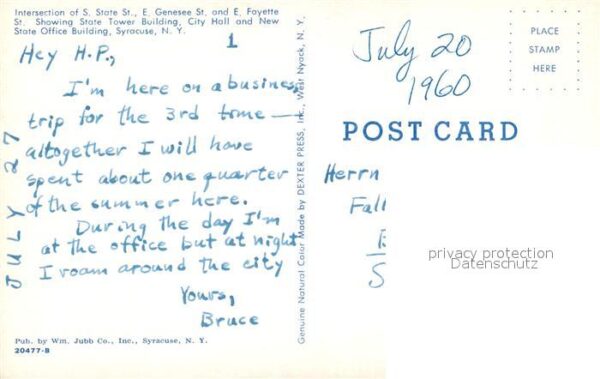 Intersection of S. State St., E. Genesee St. and E. Fayette
St. Showing State Tower Building, City Hall and New
State Office Building, Syracuse, N. Y.
1
Hey H.P.,
I'm here on a business
trip for the 3rd tome —
altogether I will have
spent about one quarter
of the summer here.
During the day I'm
at the office but at night
I roam around the city
Yours,
Bruce
JULY 27
Pub. by Wm. Jubb Co., Inc., Syracuse, N. Y.
20477-B
Genuine Natural Color Made by DEXTER PRESS, Inc., West Nyack, N. Y.
July 20
1960
PLACE
STAMP
HERE
POST CARD
Herrn
Fall
S
privacy protection
Datenschutz